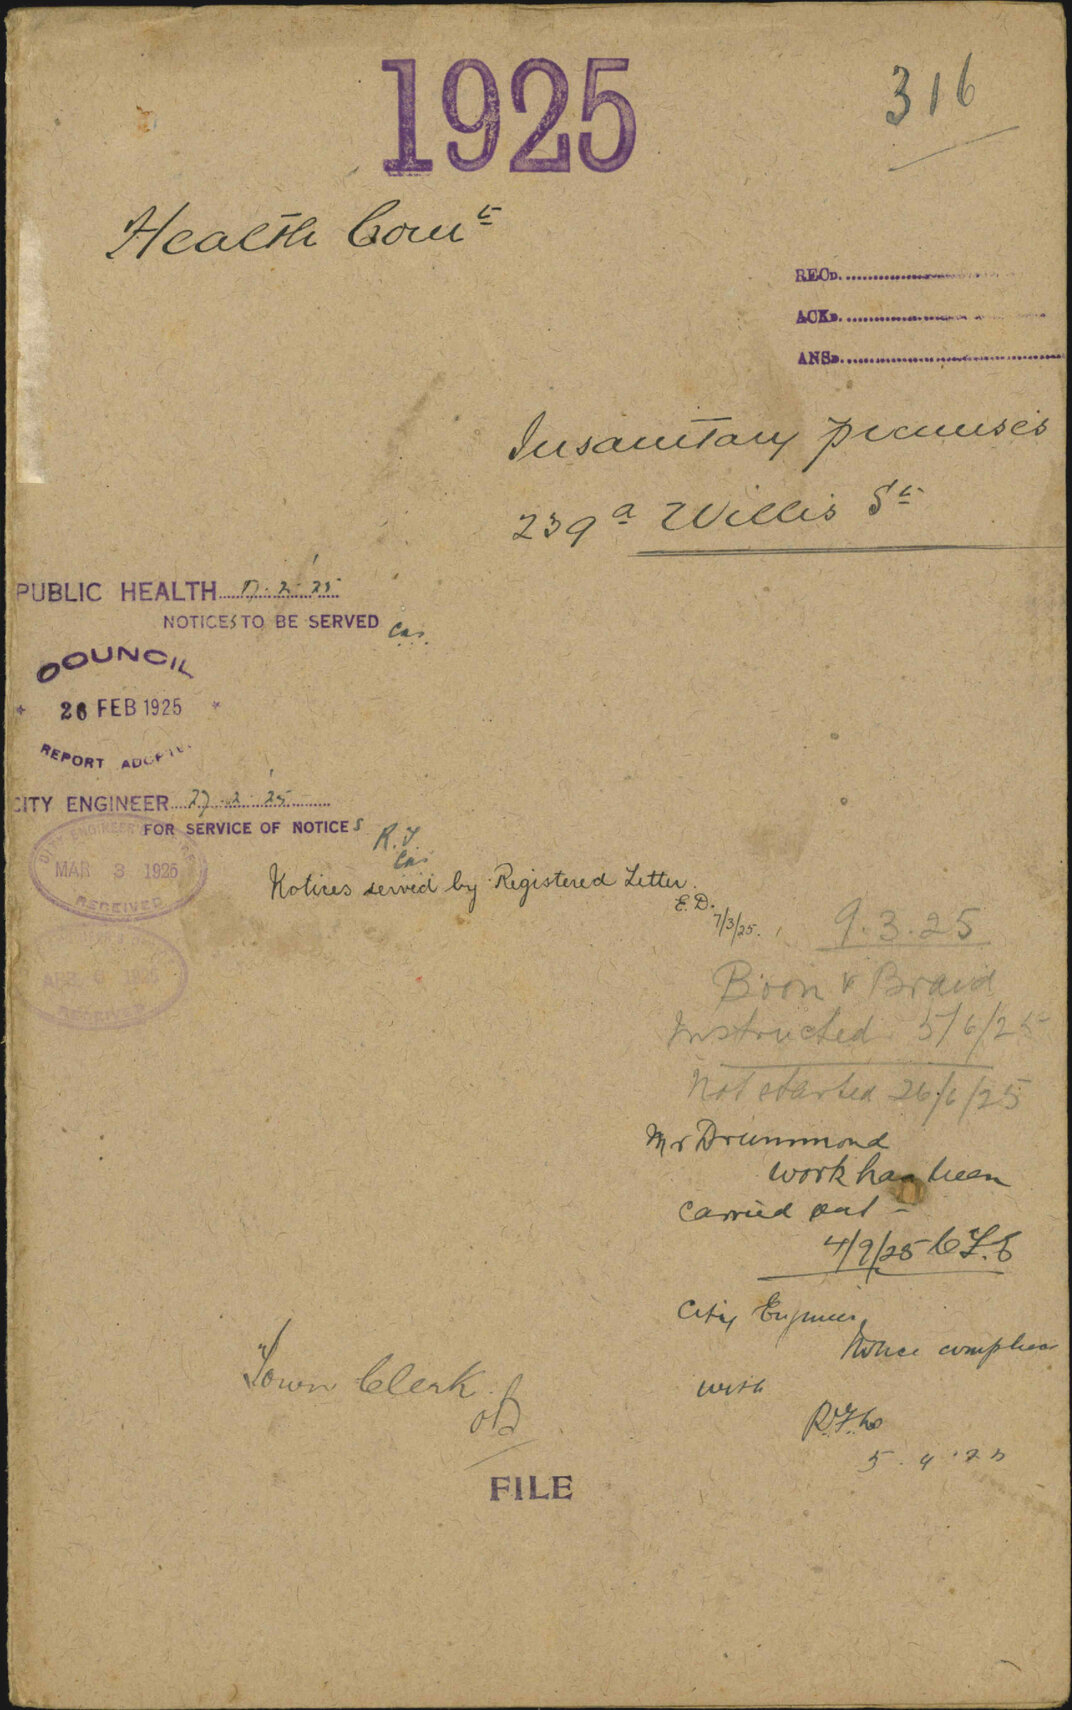 1925
316
Health Comtt
RECD.
ACKD.
ANSD.
Insanitary premises
239a Willis St
PUBLIC HEALTH 17.2.25
NOTICES TO BE SERVED
COUNCIL
26 FEB 1925
REPORT ADOPTED
CITY ENGINEER 27.2.25
FOR SERVICE OF NOTICES
MAR 3 1925
RECEIVED
Notices served by Registered Letter.
E.D.
7/3/25.
9.3.25
APR 6 1925
RECEIVED
Boon & Braid
Instructed 5/6/25
Not started 26/6/25
Mr Drummond
work has been
carried out -
4/9/25
City Engineer
Notice complied
with
Town Clerk
FILE